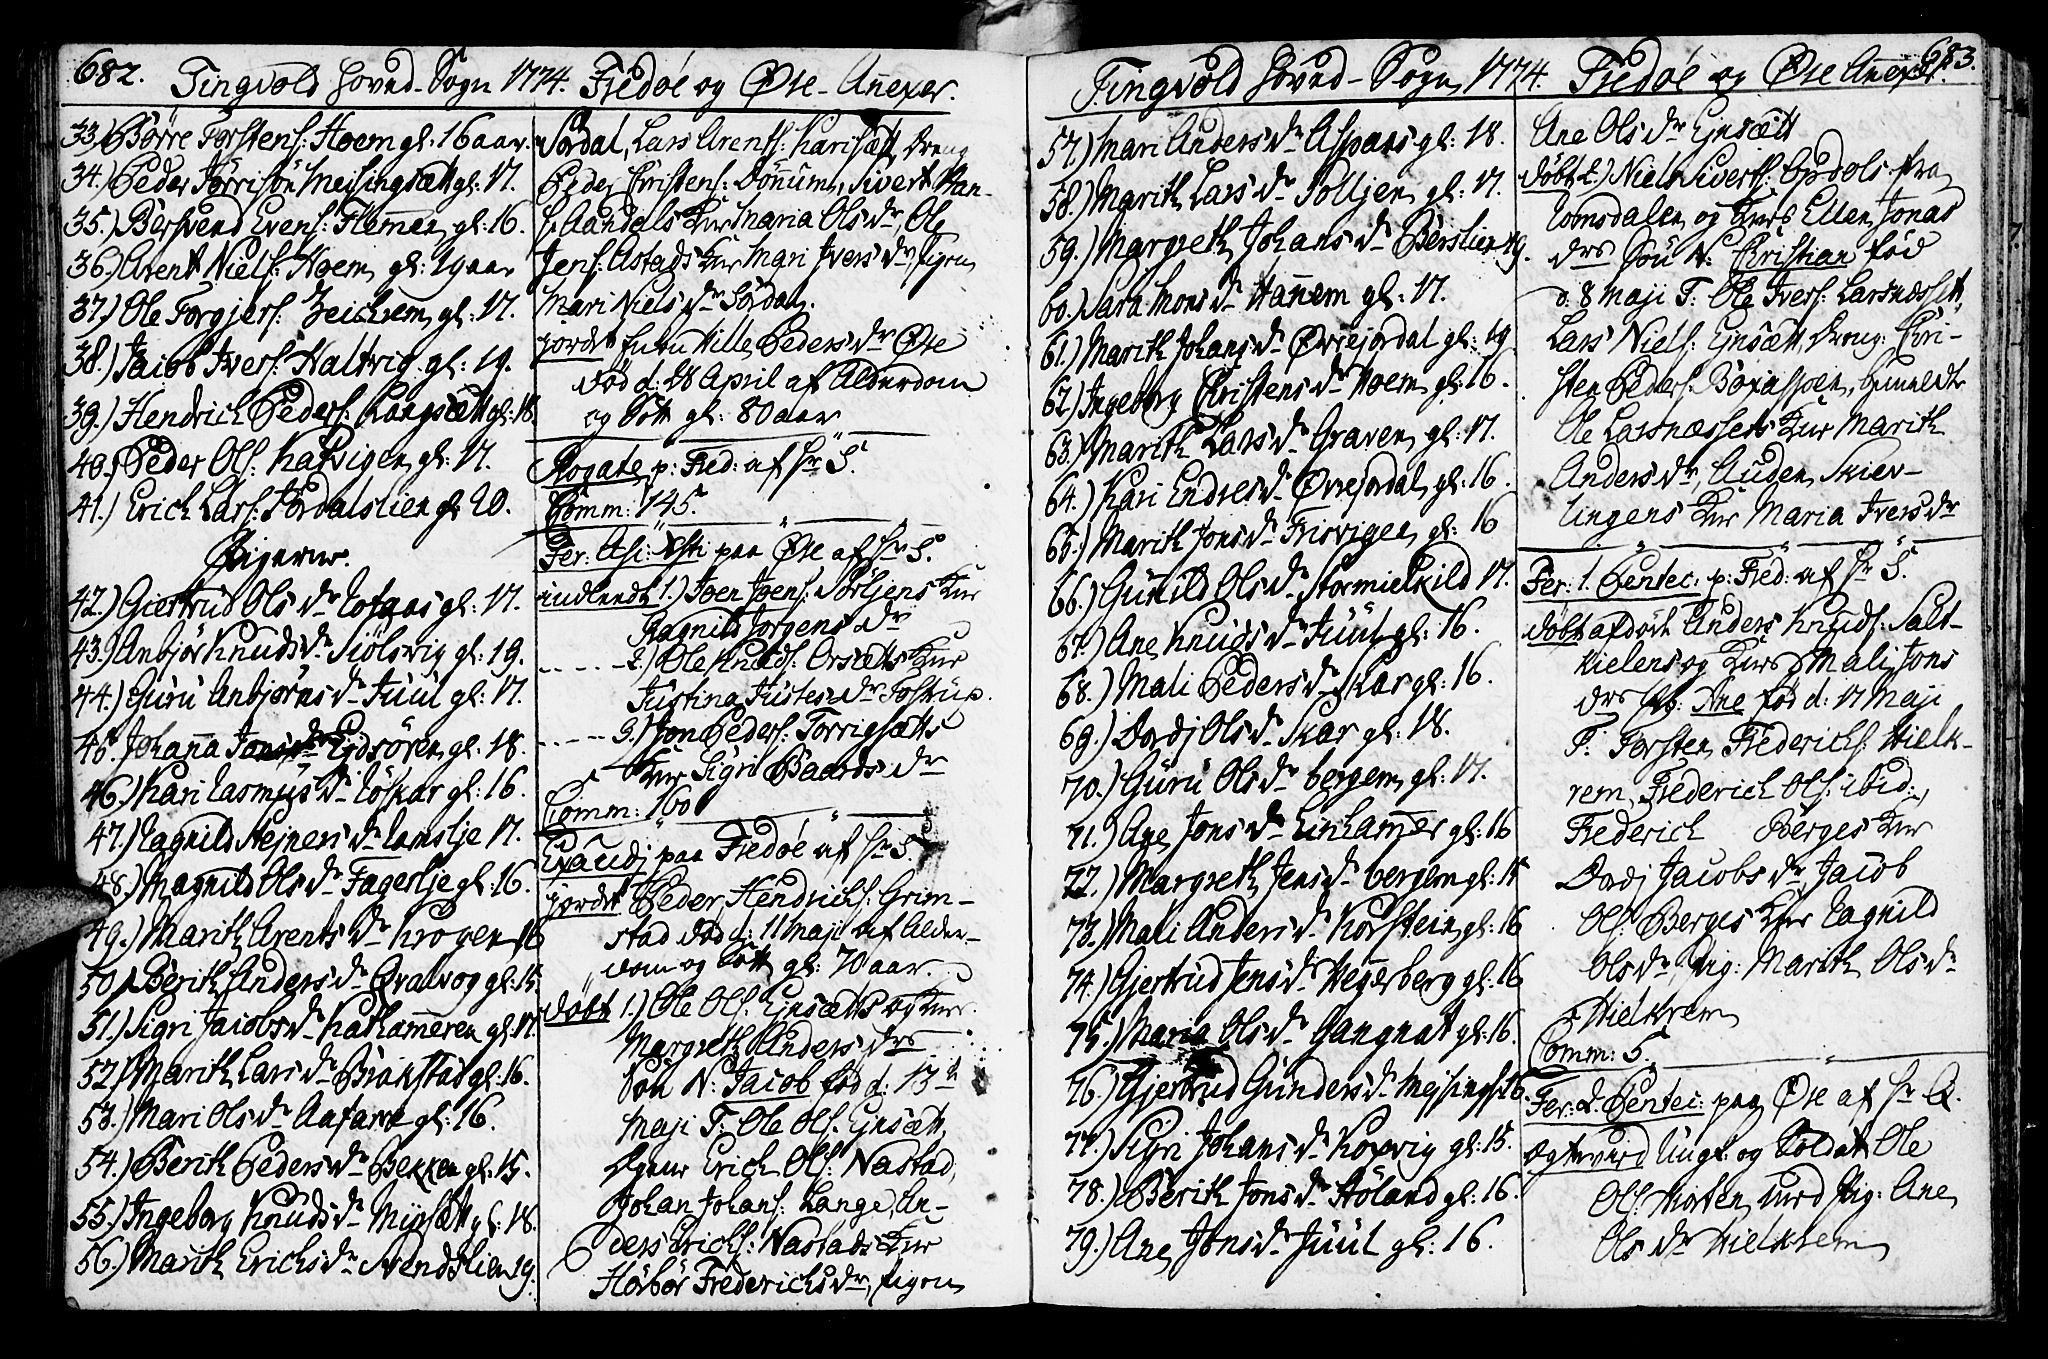 682. Tingvold Hoved-Sogn 1774. Fredøe og Øre-Anexer.
33.) Børre Torstens: Hoem gl: 16 aar.
34.) Peder Jörrisøn Meisingsætt gl: 17.
35.) Bersvend Evens: Flemmen gl: 16.
36.) Arent Niels: Hoem gl: 19 aar
37.) Ole Torgjers: Zeichem gl: 17.
38.) Jacob Ivers: Haltvig gl: 19.
39.) Hendrich Peders: Langsætt gl: 18
40.) Peder Ols: Kafvigen gl: 17.
41.) Erich Lars: Jordalslien gl: 20.
Pigerne.
42.) Giertrud Ols Dr Rotaas gl: 17.
43.) Anbjør Knuds Dr Siölsvig gl: 19.
44.) Guru Anbjörns Dr Juul gl: 17.
45. Johanna Jons Dr Eydsören gl: 18.
46.) Kari Rasmus Dr Röskar gl: 16.
47.) Ragnild Hejners Dr Ramslje 17.
48.) Magnild Ols Dr Fagerslje gl: 16.
49.) Marith Arents Dr Krogen 16
50.) Berith Anders Dr Qvalvog gl: 15
51.) Sigri Jacobs Dr Kathammeren gl: 17.
52.) Marith Lars Dr Brakstad gl: 16.
53.) Mari Ols Dr Aafarne gl: 16.
54.) Berith Peders Dr Bekken gl: 15.
55.) Ingeborg Knuds Dr Myrsætt gl: 18.
56.) Marith Erichs Dr Svendslien 19.
Sördal, Lars Arents: Karisætt, dreng
Peder Christens: Dønnum, Sivert Han-
s: Aandals Kur Maria Ols Dr, Ole
Jens: Astads Kur Mari Ivers Dr, Pigen
Mari Niels Dr Sördal.
jordet Enken Hille Peders Dr Øre
död d: 28 April af Alderdom
og Sott gl: 80 aar
Rogate, p: Fred: af Hr S.
Comm: 145.
Fer: Asc: Xsti paa Øre af Hr S.
indledt 1.) Joen Joens: Söljens Kur
Ragnild Jörgens Dr
2.) Ole Knuds: Orsætts Kur
Justina Justes Dr Tostrup.
3.) Jon Peders: Torrigsætts
Kur Sigri Baards Dr
Comm: 160
Exaudj paa Fredøe af Hr S.
jordet Peder Hendrichs: Grim-
stad død d: 11 Maji af Alder-
dom og Sott gl: 70 aar.
döbt 1.) Ole Ols: Ejnsætts og Kurs
Margreth Anders Drs
Søn N: Jacob fød d: 13de
Maji F: Ole Ols: Ejnsætt,
Erich Ols: Nastad,
Johan Johans: Lange, An-
ders Erichs: Nastads Kur
Hörbör Frederichs Dr, Pigen
Tingvold Hoved-Sogn 1774. Fredøe og Øre Anexer. 683.
57.) Mari Anders Dr Aspaas gl: 18.
58.) Marith Lars Dr Solljen gl: 17.
59.) Margreth Johans Dr Berslien 19.
60.) Sara Mons Dr Hannem gl: 17.
61.) Marith Johans Dr Øvrejordal gl: 19
62.) Ingeborg Christens Dr Hoem gl: 16.
63.) Marith Lars Dr Graven gl: 17.
64.) Kari Endres Dr Øvrejordal gl: 16
65.) Marith Jons Dr Frisvigen gl: 16
66.) Gunnild Ols Dr Stormielkild 17.
67.) Ane Knuds Dr Juul gl: 16.
68.) Mali Peders Dr Skar gl: 16.
69.) Dordj Ols Dr Skar gl: 18.
70.) Guru Ols Dr bergem gl: 17.
71.) Ane Jons Dr Einhammer gl: 16
72.) Margreth Jens Dr bergem gl: 15
73.) Mali Anders Dr Korstein gl: 16
74.) Gjertrud Jens Dr Hegerberg gl: 16
75.) Maria Ols Dr Gangnat gl: 16.
76.) Gjertrud Gunders Dr Mejsings: 16.
77.) Sigri Johans Dr Kopvig gl: 15.
78.) Berith Jons Dr Høland gl: 16.
79.) Ane Jons Dr Juul gl: 16.
Ane Ols Dr Ejnsætt
döbt 2.) Niels Siverts: Opdals fra
Romsdalen og Kurs Ellen Jonas
drs Søn N: Christian fød
d. 8 Maji F: Ole Ivers: Larsnæsset,
Lars Niels: Ejnsætt, dreng: Chri-
sten Peders: Boxassoen, bemeldt
Ole Larsnæssets Kur Marith
Anders Dr, Auden Skier-
lingens Kur Maria Ivers Dr
Fer: 1. Pentec: p: Fred: af Hr S.
döbt Anders Knuds: Salt-
kielens og Kurs Mali Jons
drs B: Ane fød d: 17 Maji
F: Torsten Frederichs: Hielk-
rem, Frederich Ols: ibid:,
Frederich Berges Kur
Dordj Jacobs Dr Jacob
Ols: Berges Kur Ragnild
Ols Dr, Pig: Marith Ols Dr
Hielkrem
Comm: 5.
Fer: 2. Pentec: paa Øre af Hr A.
Ægteviid Ungk: og Soldat Ole
Ols: Morten med Pig: Ane
Ols Dr Hielkrem